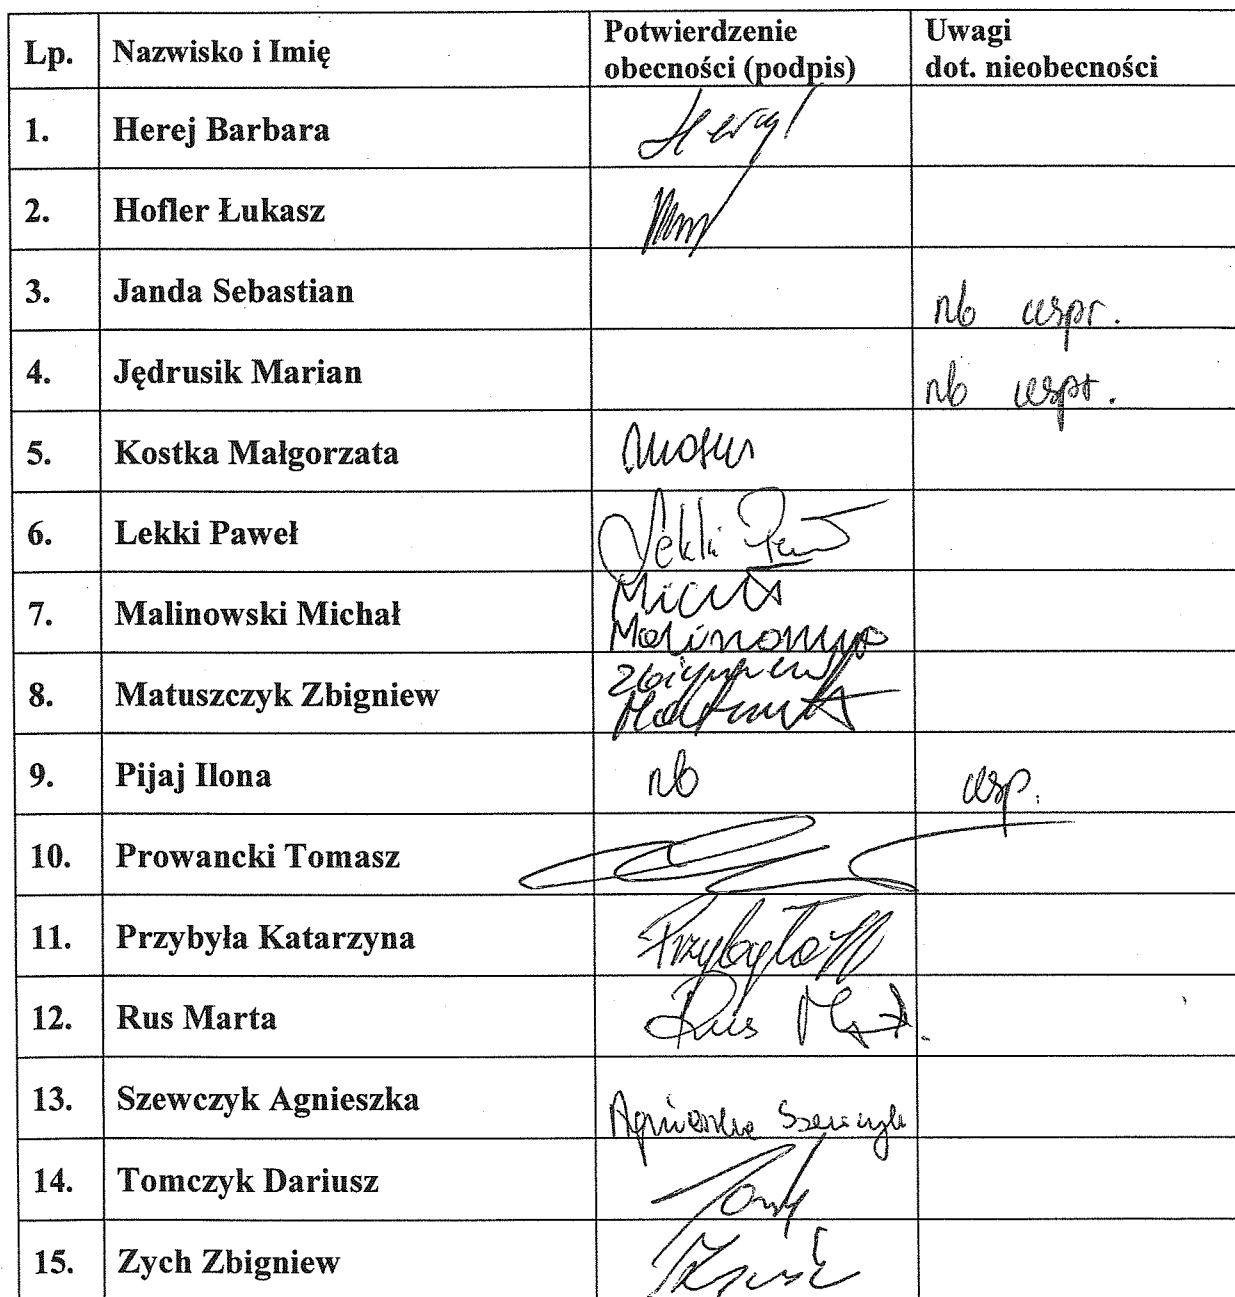 Lp. Nazwisko i Imię Potwierdzenie obecności (podpis) Uwagi dot. nieobecności
1. Herej Barbara Herej
2. Hofler Łukasz
3. Janda Sebastian nb uspr.
4. Jędrusik Marian nb uspr.
5. Kostka Małgorzata
6. Lekki Paweł Lekki Paweł
7. Malinowski Michał Michał
Malinowski
8. Matuszczyk Zbigniew Zbigniew
9. Pijaj Ilona nb usp.
10. Prowancki Tomasz
11. Przybyła Katarzyna Przybyła
12. Rus Marta Rus
13. Szewczyk Agnieszka Agnieszka Szewczyk
14. Tomczyk Dariusz
15. Zych Zbigniew